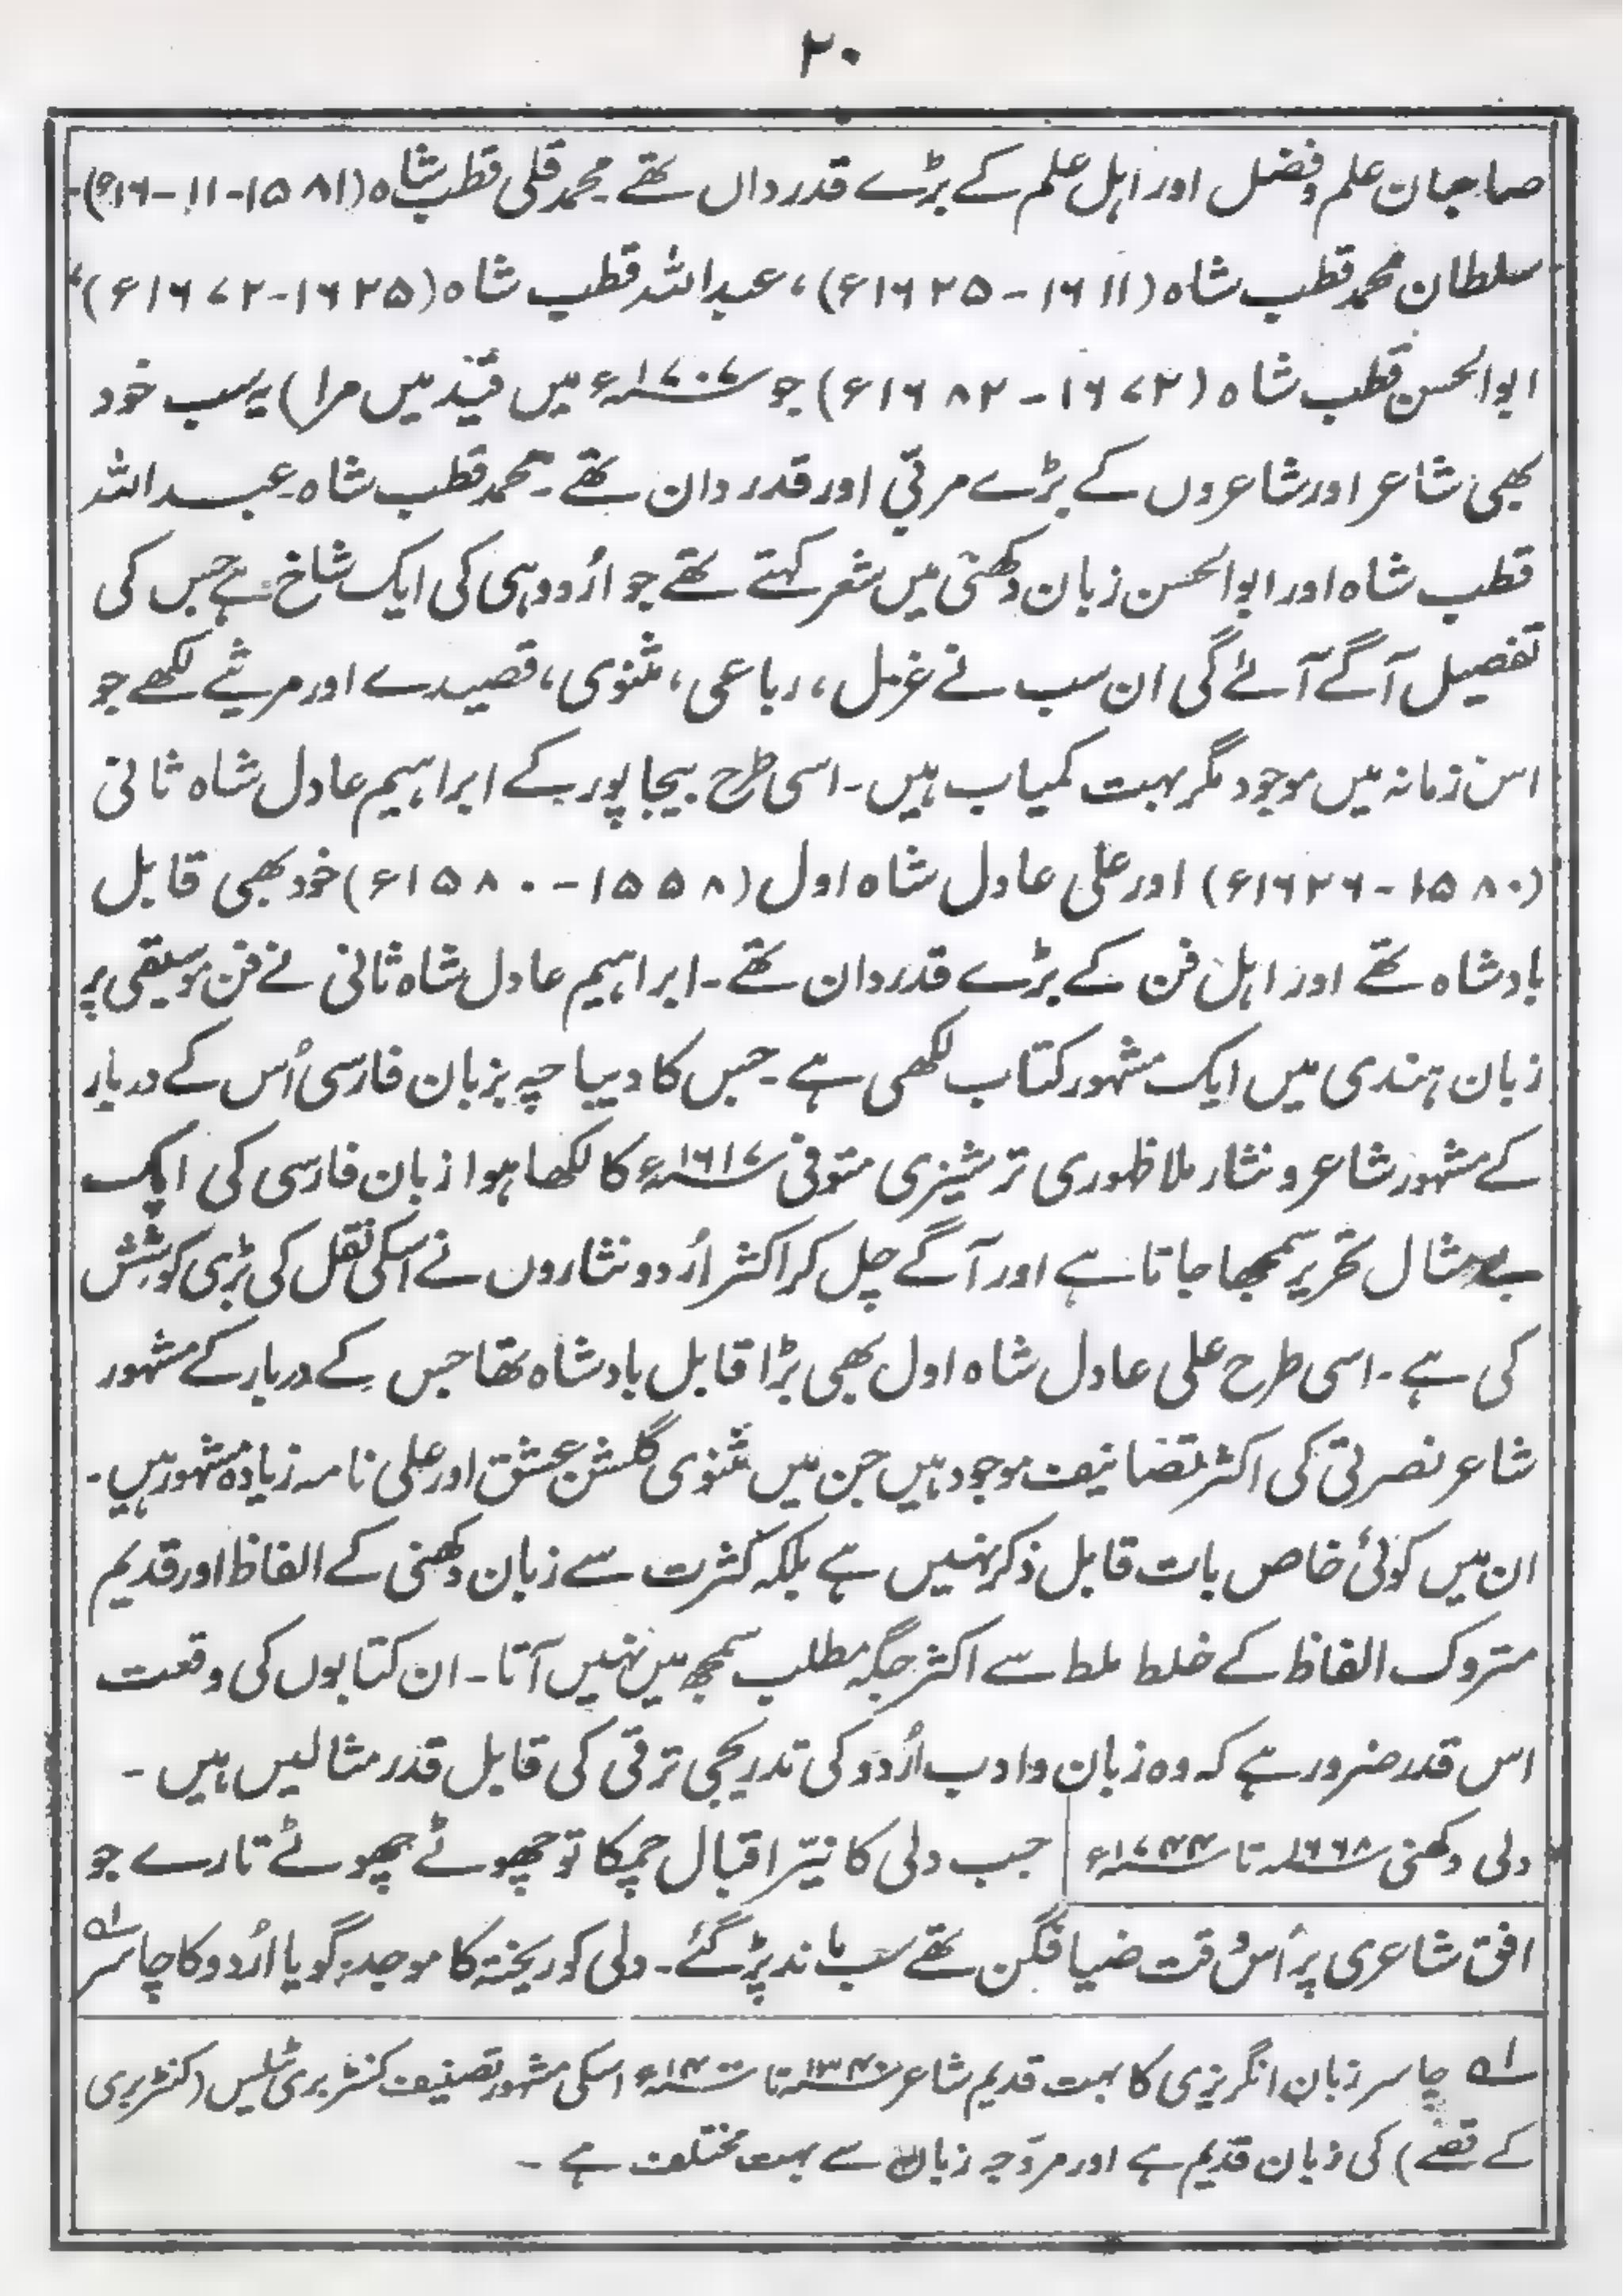 ۲۰
صاحبان علم و فضل اور اہل علم کے بڑے قدرداں تھے۔ محمد قلی قطب شاہ (۱۵۸۱-۱۱-۱۶ء)۔
سلطان محمد قطب شاہ (۱۶۱۱-۱۶۲۵ء)، عبداللہ قطب شاہ (۱۶۲۵-۱۶۷۲ء)،
ابوالحسن قطب شاہ (۱۶۷۲-۱۶۸۲ء) جو ۱۷۰۷ء میں قید میں مرا) یہ سب خود
بھی شاعر اور شاعروں کے بڑے مربّی اور قدردان تھے۔ محمد قطب شاہ۔ عبداللہ
قطب شاہ اور ابوالحسن زبان دکھنی میں شعر کہتے تھے جو اُردو ہی کی ایک شاخ ہے جس کی
تفصیل آگے آئے گی ان سب نے غزل، رباعی، مثنوی، قصیدے اور مرثیے لکھے جو
اس زمانہ میں موجود مگر بہت کمیاب ہیں۔ اسی طرح بیجاپور کے ابراہیم عادل شاہ ثانی
(۱۵۸۰-۱۶۲۶ء) اور علی عادل شاہ اول (۱۵۵۸-۱۵۸۰ء) خود بھی قابل
بادشاہ تھے اور اہل فن کے بڑے قدردان تھے۔ ابراہیم عادل شاہ ثانی نے فن موسیقی پر
زبان ہندی میں ایک مشہور کتاب لکھی ہے۔ جس کا دیباچہ بزبان فارسی اُس کے دربار
کے مشہور شاعر و نثار ملا ظہوری ترشیزی متوفی ۱۶۱۷ء کا لکھا ہوا زبان فارسی کی ایک
بے مثال تحریر سمجھا جاتا ہے اور آگے چل کر اکثر اُردو نثاروں نے اسکی نقل کی بڑی کوشش
کی ہے۔ اسی طرح علی عادل شاہ اول بھی بڑا قابل بادشاہ تھا جس کے دربار کے مشہور
شاعر نصرتی کی اکثر تصانیف موجود ہیں جن میں مثنوی گلشن عشق اور علی نامہ زیادہ مشہور ہیں۔
ان میں کوئی خاص بات قابل ذکر نہیں ہے بلکہ کثرت سے زبان دکھنی کے الفاظ اور قدیم
متروک الفاظ کے خلط ملط سے اکثر جگہ مطلب سمجھ میں نہیں آتا۔ ان کتابوں کی وقعت
اس قدر ضرور ہے کہ وہ زبان و ادب اُردو کی تدریجی ترقی کی قابل قدر مثالیں ہیں۔
ولی دکھنی ۱۶۶۸ء تا ۱۷۴۴ء جب ولی کا نیّر اقبال چمکا تو چھوٹے چھوٹے تارے جو
افق شاعری پر اُس وقت ضیا فگن تھے سب ماند پڑ گئے۔ ولی کو ریختہ کا موجد، گویا اُردو کا چاسر ۱ہ
۱ہ چاسر زبان انگریزی کا بہت قدیم شاعر ۱۳۴۰ء تا ۱۴۰۰ء اسکی مشہور تصنیف کنٹربری ٹیلس (کنٹربری
کے قصے) کی زبان قدیم ہے اور مروّجہ زبان سے بہت مختلف ہے۔